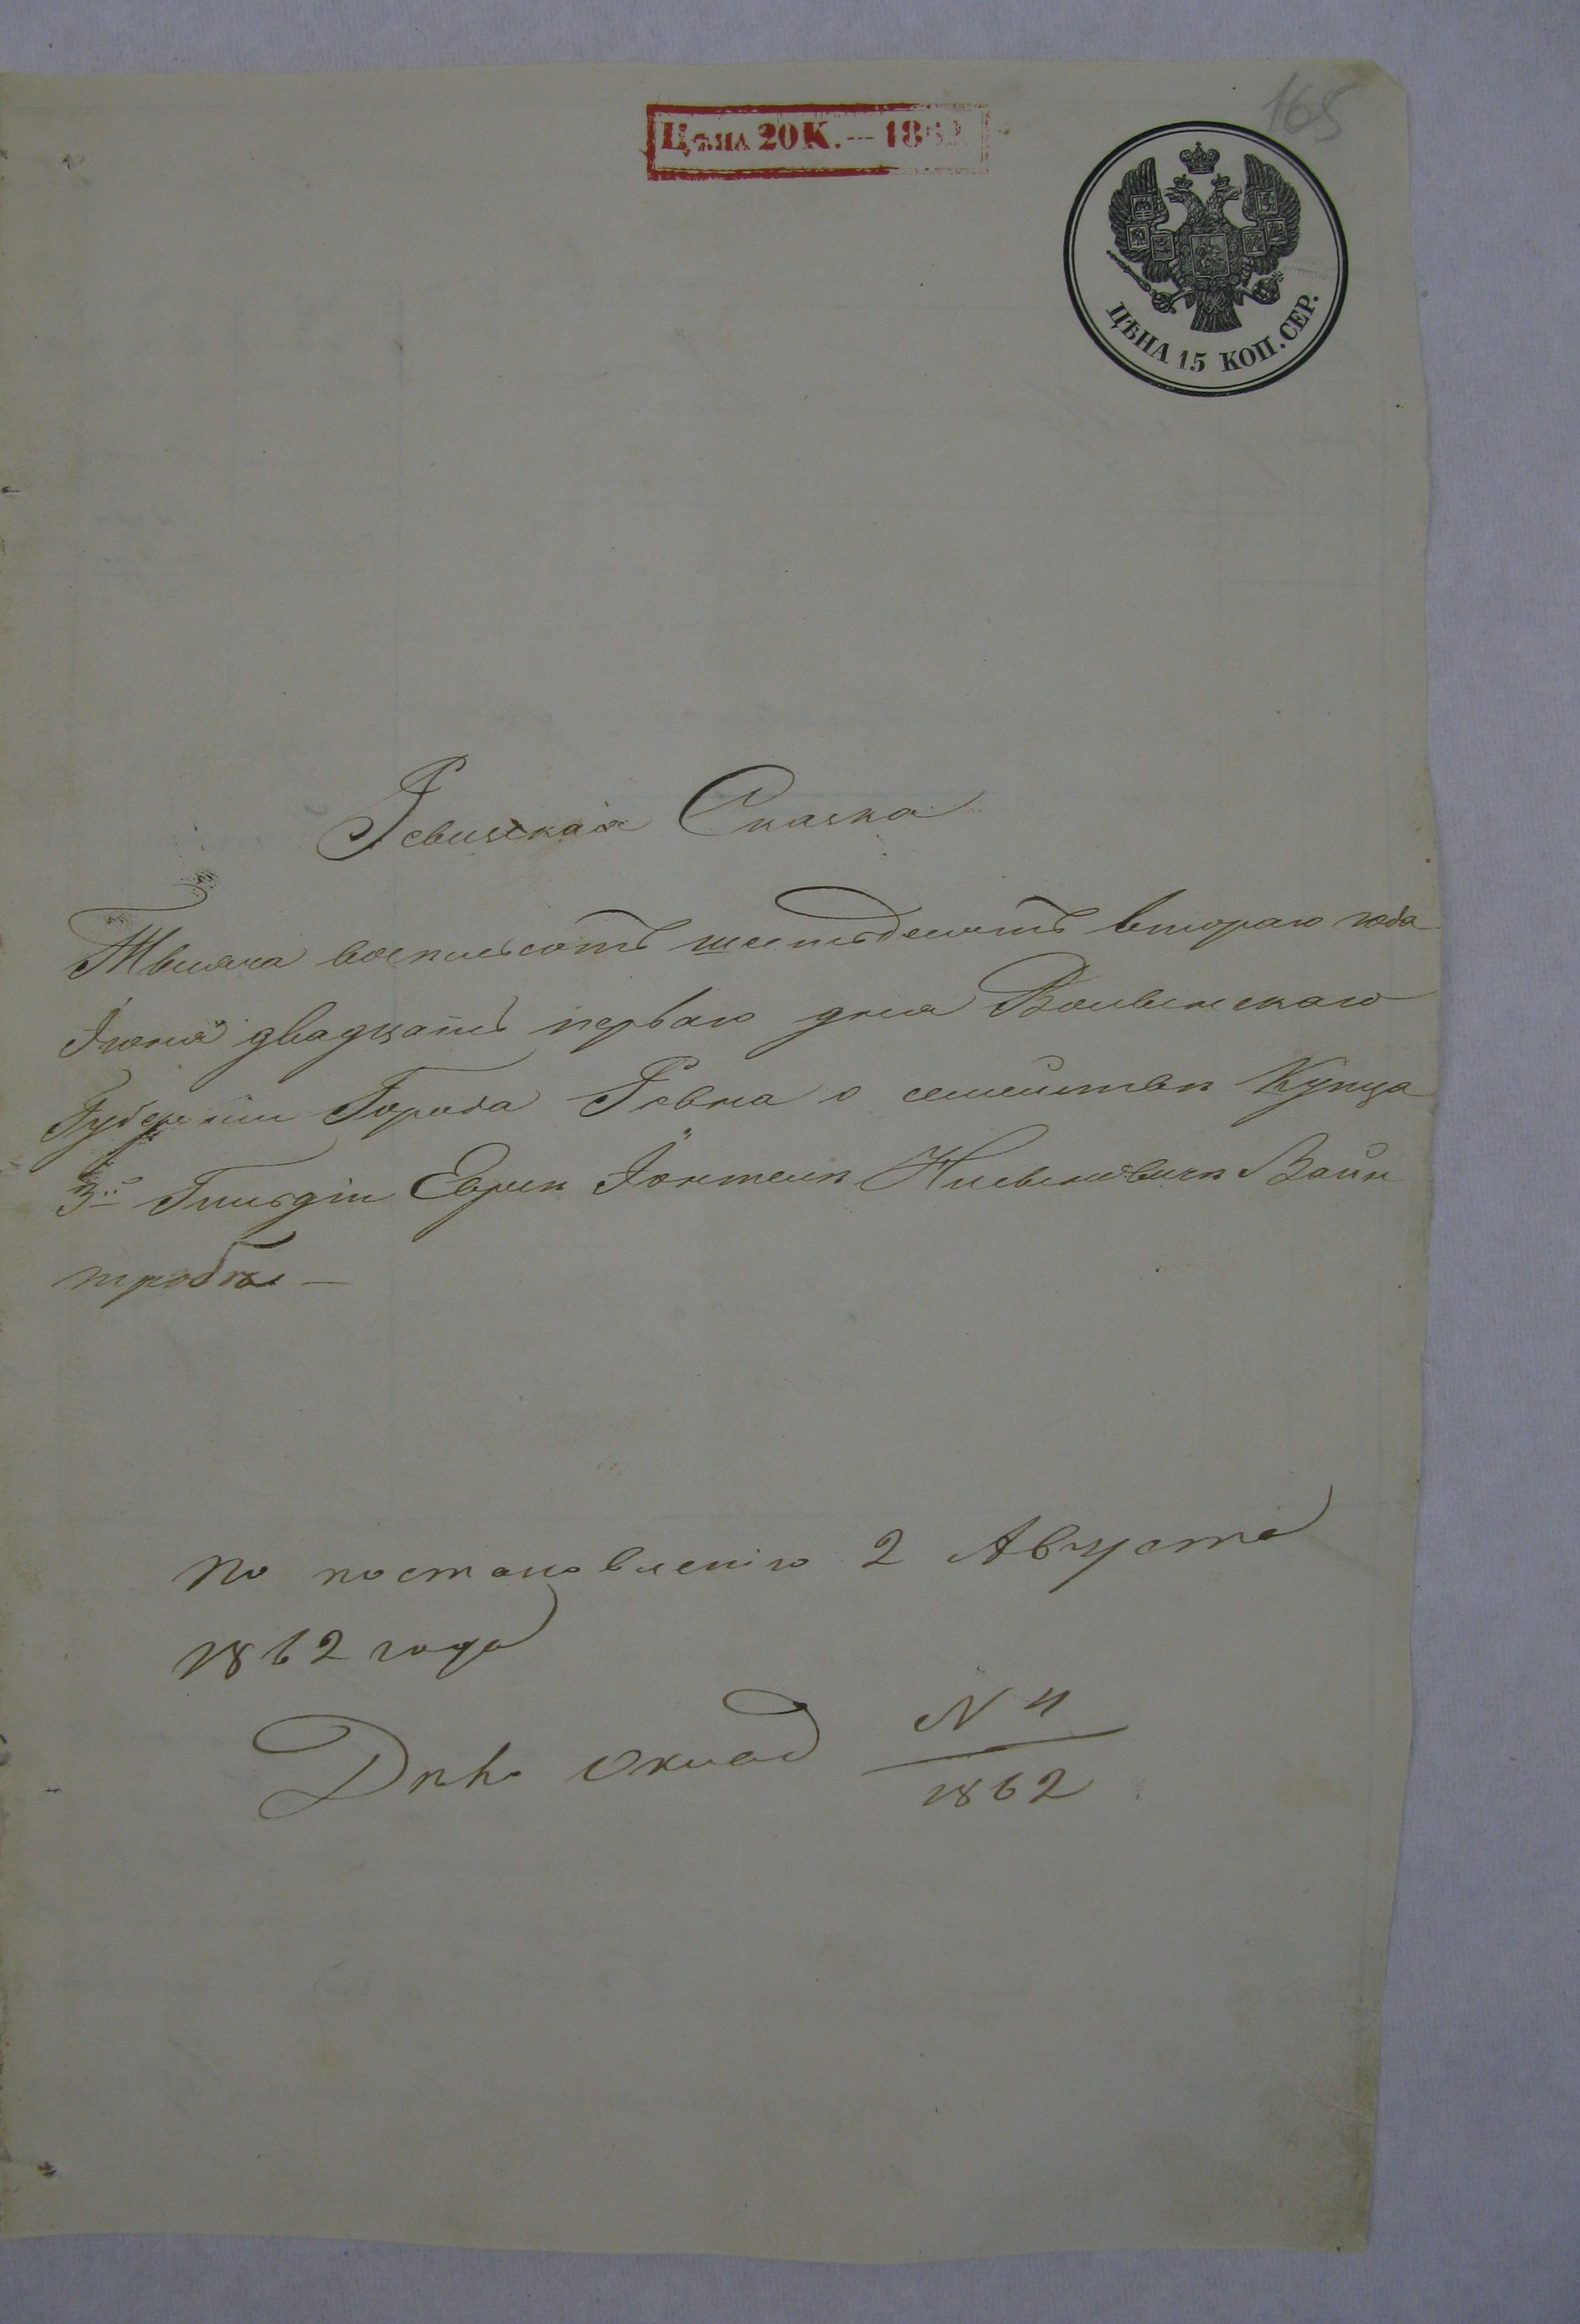 165
Цѣна 20 К. — 1862
ЦѢНА 15 КОП. СЕР.
Ревизкая Сказка
Тысяча восемьсотъ шестьдесятъ втораго года
Іюня двадцать перваго дня Волынскаго
Губерніи Города Ровна о семействѣ Купца
3й Гильдіи
тробъ —
По постановленію 2 Августа
1862 года
Дѣло оклад
N 4
1862